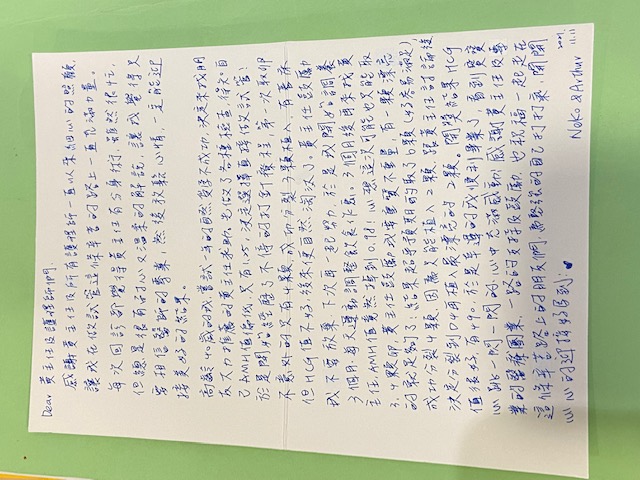 Dear 黃主任及護理師們:
感謝黃主任及所有護理師一直以來細心的照顧,
讓我在做試管這條辛苦的路上一直充滿力量。
每次回診都覺得黃主任有分身術,雖然很忙,
但總是很有耐心又溫柔的解說,讓我覺得只
要相信醫師的專業,然後放鬆心情,一定能迎
接美好的結果。
高齡40歲的我,嘗試一年的自然受孕不成功,決定來找朋
友大力推薦的黃主任求助,先做了各種檢查,得知自
己AMH值偏低,只有1.25,決定選擇直接做試管!
於是開始經歷了不停的打針療程,第一次取卵
不意外的只有4顆,成功分裂3顆植入,有著床
但HCG值不好,後來便自然淘汰了。黃主任鼓勵
我不要放棄,下次再一起努力,於是我開始調養
3個月,每天運動調整飲食作息。3個月後再來找黃
主任,AMH值竟然掉到0.98!心想這次可能也只能取
3.4顆卵,黃主任鼓勵我要重質不重量,有一顆漂亮
的就足夠了!結果超乎預期的取了6顆(好容易滿足),
成功分裂4顆,因為只能植入2顆,跟黃主任討論後
決定分裂到D4再植入最漂亮的2顆。開獎結果HCG
值很好,有490,於是幸運的我順利畢業了,看到寶寶
心跳一閃一閃的,心中充滿感動!感謝黃主任及專
業的醫療團隊,一路的支持及鼓勵,也祝福一起走在
這條辛苦路上的朋友們,為堅強的自己打打氣,開開
心心的迎接好孕到!
Neko & Arthur
2021.
11.11